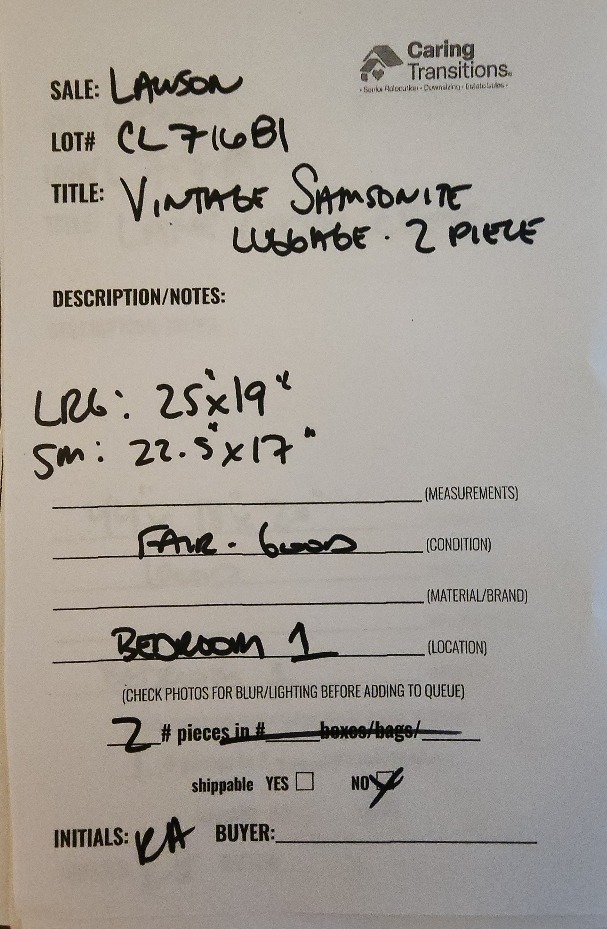 Caring
Transitions.
· Senior Relocation · Downsizing · Estate Sales ·
SALE: LAWSON
LOT# CL716B1
TITLE: VINTAGE SAMSONITE
LUGGAGE · 2 PIECE
DESCRIPTION/NOTES:
LRG: 25"x19"
SM: 22.5"x17"
(MEASUREMENTS)
FAIR - GOOD (CONDITION)
(MATERIAL/BRAND)
BEDROOM 1 (LOCATION)
(CHECK PHOTOS FOR BLUR/LIGHTING BEFORE ADDING TO QUEUE)
2 # pieces in # boxes/bags/
shippable YES NO
INITIALS: RA BUYER: